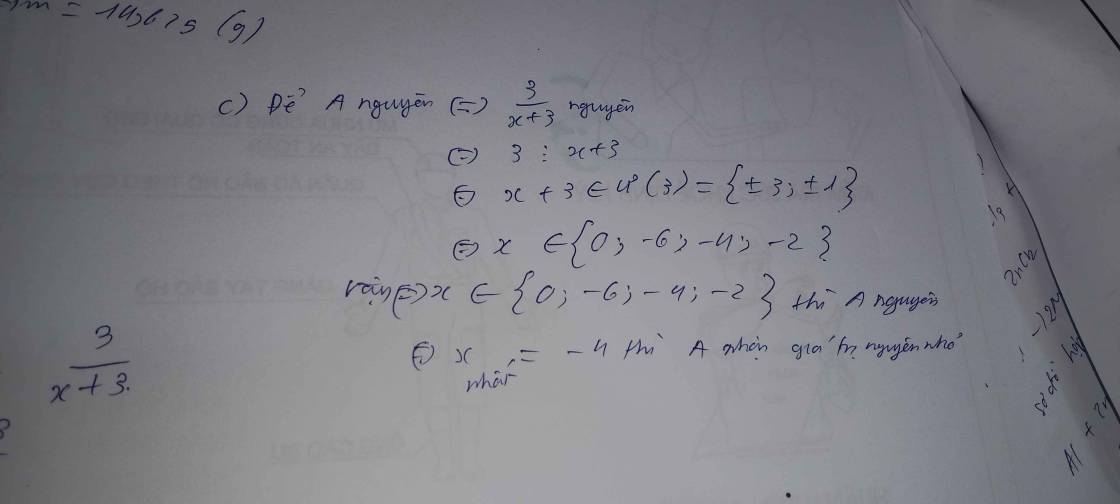 m = 14,625 (g)
c) Để A nguyên (=) 3/x+3 nguyên
(=) 3 ⋮ x+3
(=) x + 3 ∈ Ư(3) = {±3; ±1}
(=) x ∈ {0; -6; -4; -2}
Vậy (=) x ∈ {0; -6; -4; -2} thì A nguyên
(=) x = -4 thì A nhận giá trị nguyên nhỏ
nhất
3/x+3.